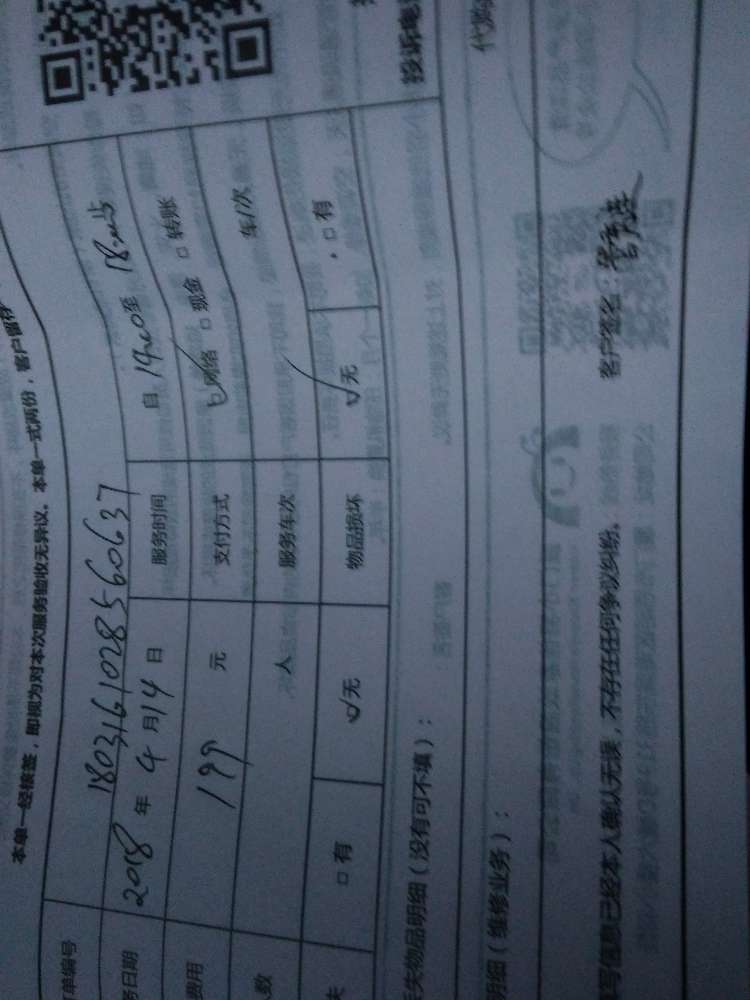 本单一经核签，即视为对本次服务验收无异议。本单一式两份，客户留存
单编号 1803161028560637
务日期 2018 年 4 月 14 日 服务时间 自 14:00 至 18:00
费用 199 元 支付方式 网络 □现金 □转账
人数 人 服务车次 车/次
失 □有 无 物品损坏 无 □有
失物品明细（没有可不填）：
投诉电
明细（维修业务）：
代购
写信息已经本人确认无误，不存在任何争议纠纷。 客户签名：